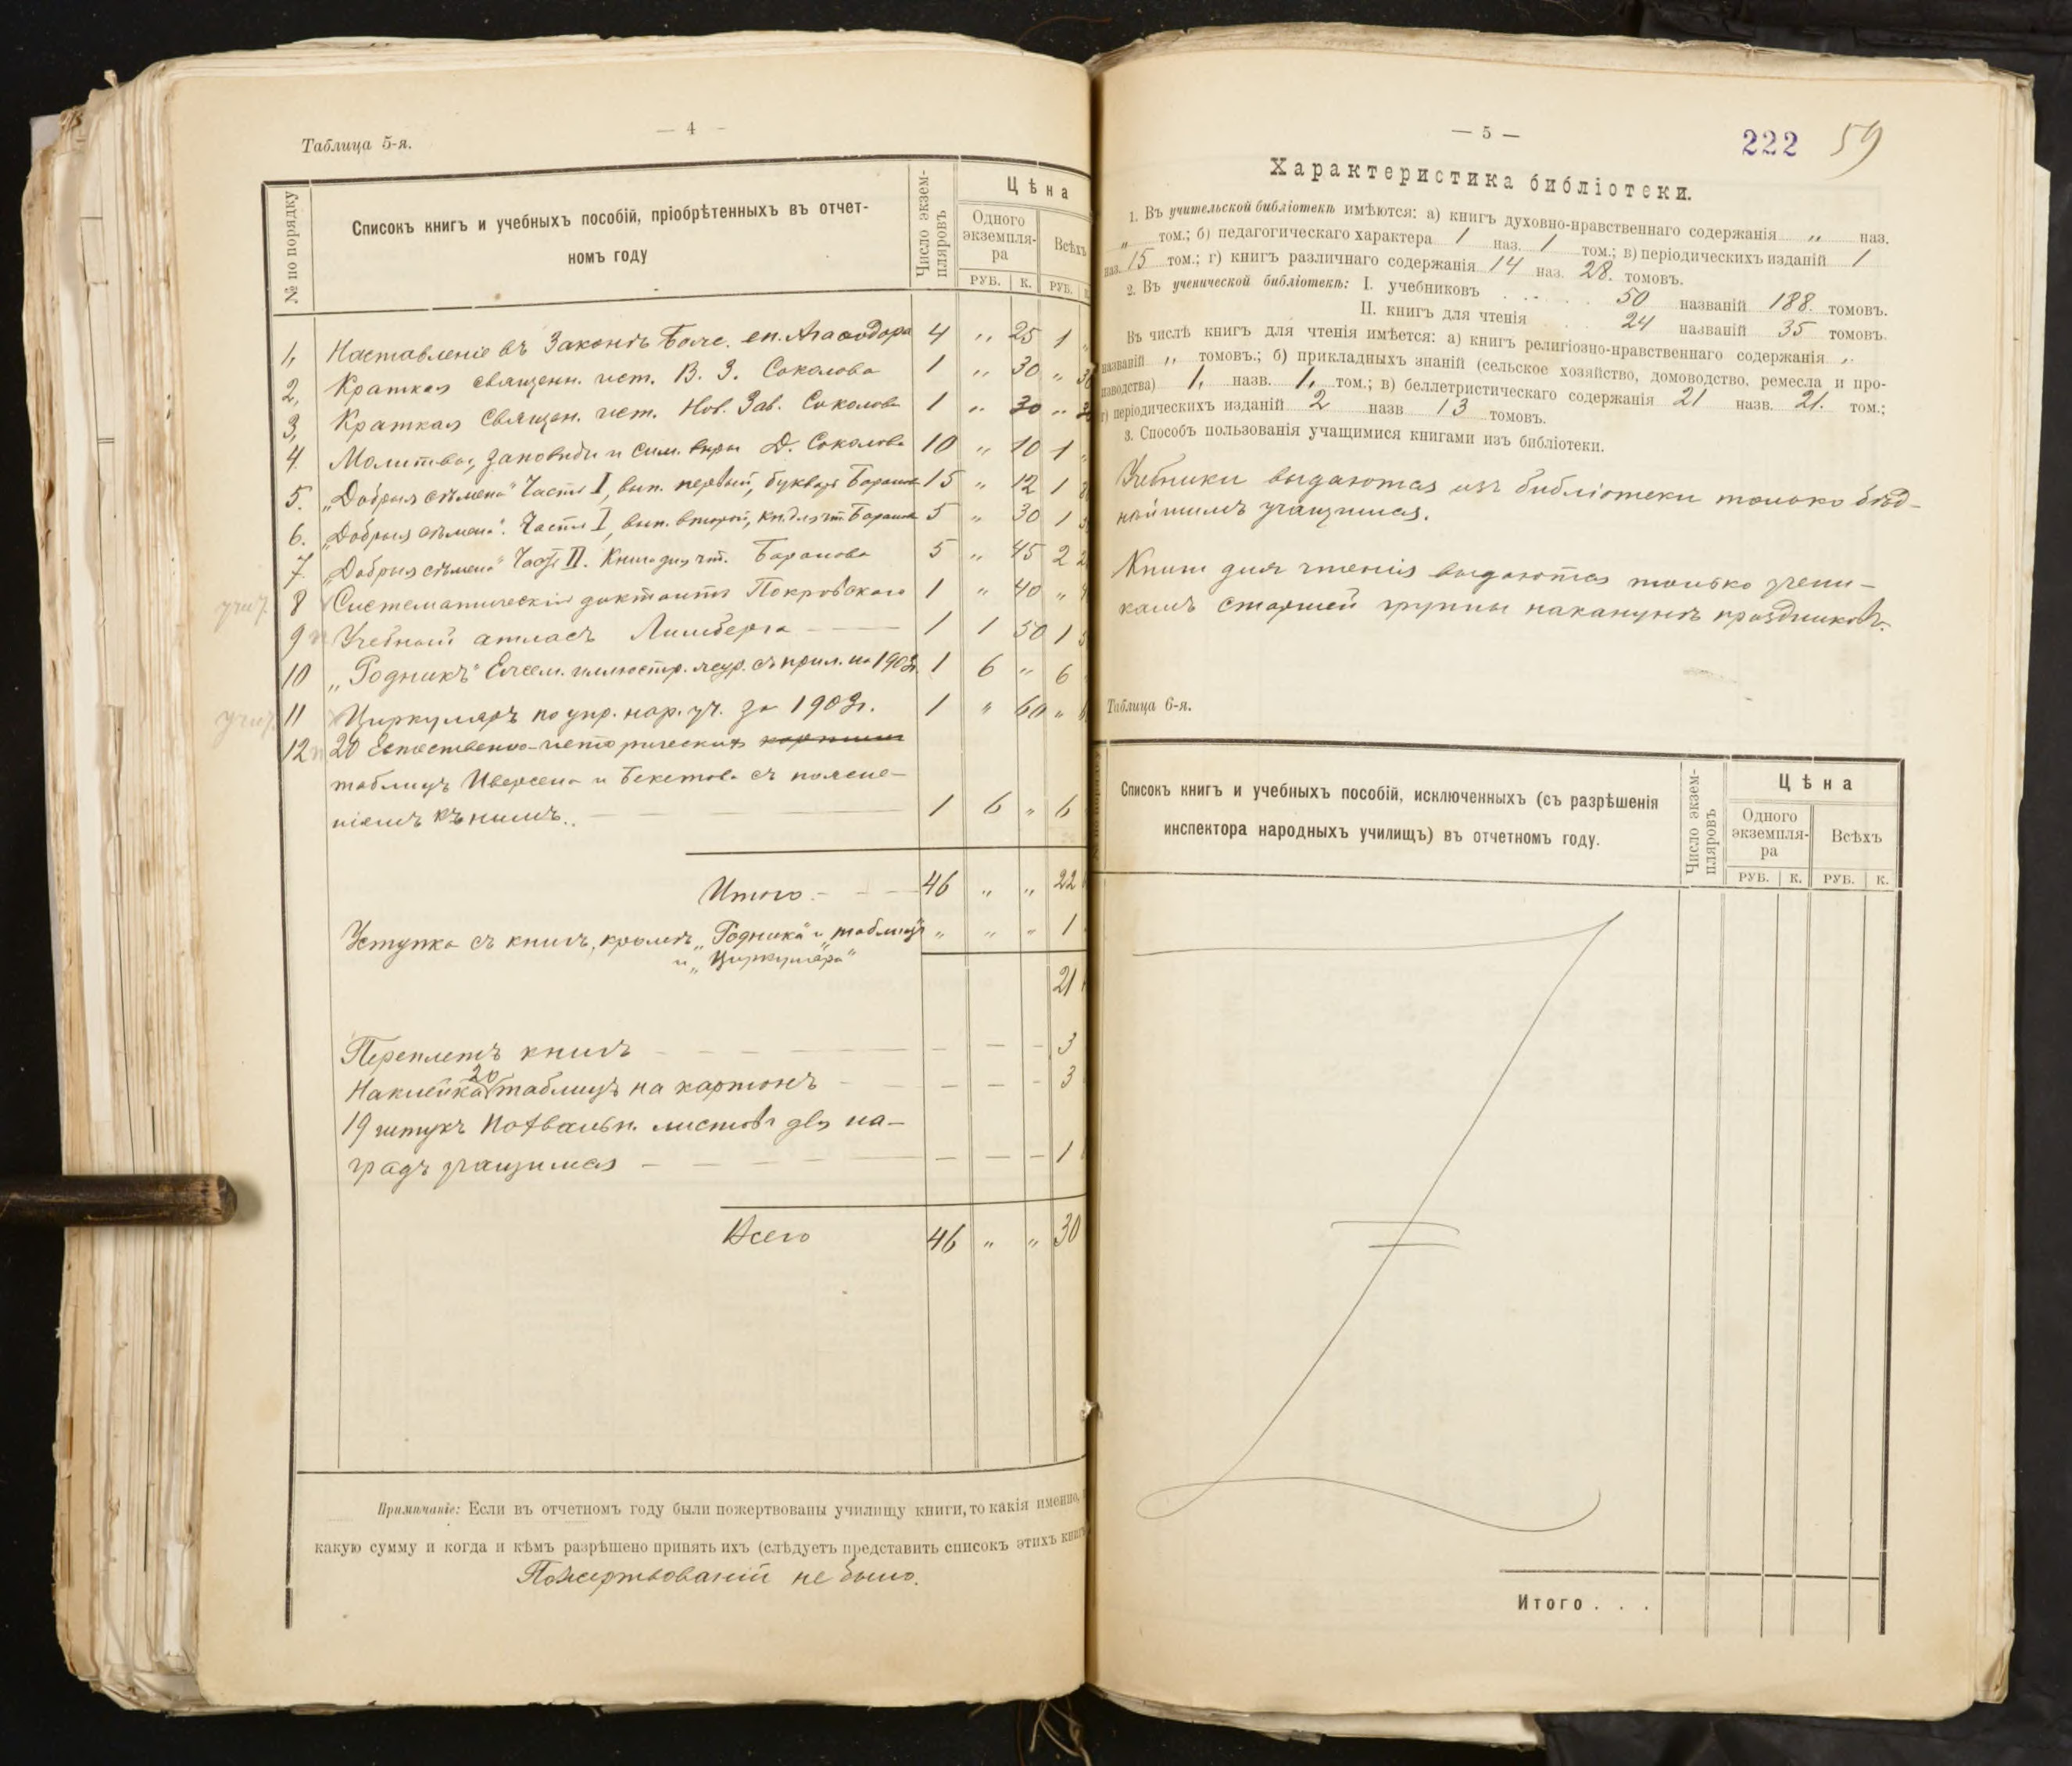 — 4 —
Таблица 5-я.
№ по порядку
Списокъ книгъ и учебныхъ пособій, пріобрѣтенныхъ въ отчет-
номъ году
Число экзем-
пляровъ
Цѣна
Одного
экземпля-
ра
Всѣхъ
РУБ. К. РУБ.
1, Наставленіе въ Законѣ Бож. еп. Агаѳодора 4 „ 25 1
2, Краткая священн. ист. В. З. Соколова 1 „ 30 „
3, Краткая Священ. ист. Нов. Зав. Соколова 1 „ 30 „
4. Молитвы, заповѣди и сим. вѣры Д. Соколова 10 „ 10 1
5. „Добрыя сѣмена" Часть I, вып. первый, букварь Баранова 15 „ 12 1
6. „Добрыя сѣмена". Часть I, вып. второй, кн. для чт. Баранова 5 „ 30 1
7. „Добрыя сѣмена" Часть II. Книга для чт. Баранова 5 „ 45 2
8 Систематическій диктантъ Покровскаго 1 „ 40 „
9 Учебный атласъ Линберга — 1 1 50 1
10 „Родникъ" Ежем. иллюстр. жур. съ прил. на 1903г. 1 6 „ 6
11 Циркуляръ по упр. нар. уч. за 1903г. 1 „ 60 „
12 20 Естественно-историческихъ картинъ
таблицъ Иверсена и Бекетова съ поясне-
ніемъ къ нимъ. — 1 6 „ 6
Итого — 46 „ „ 22
Уступка съ книгъ, кромѣ „Родника" и „таблицъ" „ „ „ 1
и „Циркуляра"
21
Переплетъ книгъ — — — 3
Наклейка 20 таблицъ на картонъ — — — 3
19 штукъ похвальн. листовъ для на-
градъ учащимся — — — 1
Всего 46 „ „ 30
Примѣчаніе: Если въ отчетномъ году были пожертвованы училищу книги, то какія именно,
какую сумму и когда и кѣмъ разрѣшено принять ихъ (слѣдуетъ представить списокъ этихъ книгъ
Пожертвованій не было.
— 5 —
222 59
Характеристика библіотеки.
1. Въ учительской библіотекѣ имѣются: а) книгъ духовно-нравственнаго содержанія „ наз.
„ том.; б) педагогическаго характера 1 наз. 1 том.; в) періодическихъ изданій 1
наз. 15 том.; г) книгъ различнаго содержанія 14 наз. 28. томовъ.
2. Въ ученической библіотекѣ: I. учебниковъ . . . . 50 названій 188. томовъ.
II. книгъ для чтенія 24 названій 35 томовъ.
Въ числѣ книгъ для чтенія имѣется: а) книгъ религіозно-нравственнаго содержанія „
названій „ томовъ.; б) прикладныхъ знаній (сельское хозяйство, домоводство, ремесла и про-
изводства) 1, назв. 1, том.; в) беллетристическаго содержанія 21 назв. 21. том.;
г) періодическихъ изданій 2 назв 13 томовъ.
3. Способъ пользованія учащимися книгами изъ библіотеки.
Учебники выдаются изъ библіотеки только бѣд-
нѣйшимъ учащимся.
Книги для чтенія выдаются только учени-
камъ старшей группы наканунѣ праздниковъ.
Таблица 6-я.
Списокъ книгъ и учебныхъ пособій, исключенныхъ (съ разрѣшенія
инспектора народныхъ училищъ) въ отчетномъ году.
Число экзем-
пляровъ
Цѣна
Одного
экземпля-
ра
Всѣхъ
РУБ. К. РУБ. К.
Итого . . .